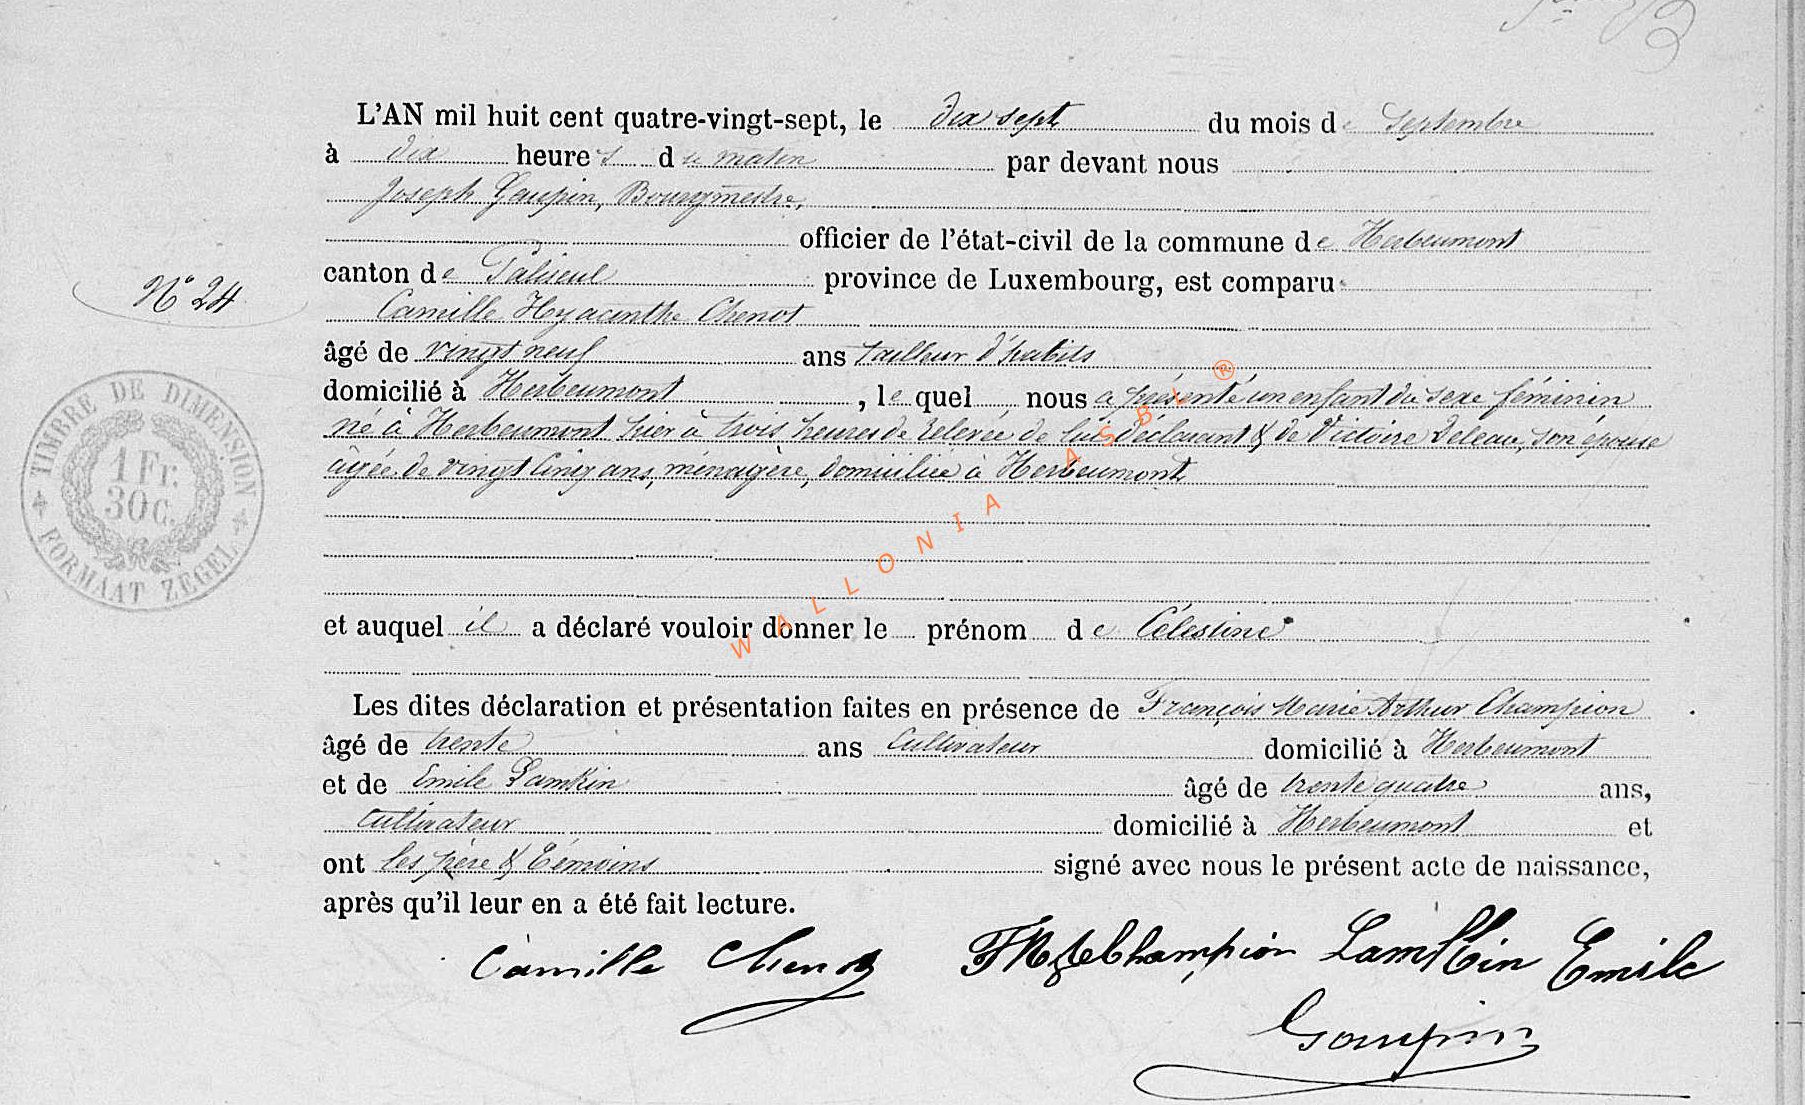 L'AN mil huit cent quatre-vingt-sept, le dix sept du mois de Septembre
à dix heures du matin par devant nous
Joseph Gaupin, Bourgmestre,
officier de l'état-civil de la commune de Herbeumont
N° 24
canton de Paliseul province de Luxembourg, est comparu
Camille Hyacinthe Chenot
âgé de vingt neuf ans tailleur d'habits
domicilié à Herbeumont, lequel nous a présenté un enfant du sexe féminin
né à Herbeumont hier à trois heures de relevée de lui déclarant & de Victoire Deleau, son épouse
âgée de vingt cinq ans, ménagère, domiciliée à Herbeumont
TIMBRE DE DIMENSION
1 Fr.
30 C.
FORMAAT ZEGEL
WALLONIA ASBL ®
et auquel il a déclaré vouloir donner le prénom de Célestine
Les dites déclaration et présentation faites en présence de François Marie Arthur Champion
âgé de trente ans Cultivateur domicilié à Herbeumont
et de Emile Lamkin âgé de trente quatre ans,
cultivateur domicilié à Herbeumont et
ont les père & témoins signé avec nous le présent acte de naissance,
après qu'il leur en a été fait lecture.
Camille Chenot Champion Lamkin Emile
Gaupin